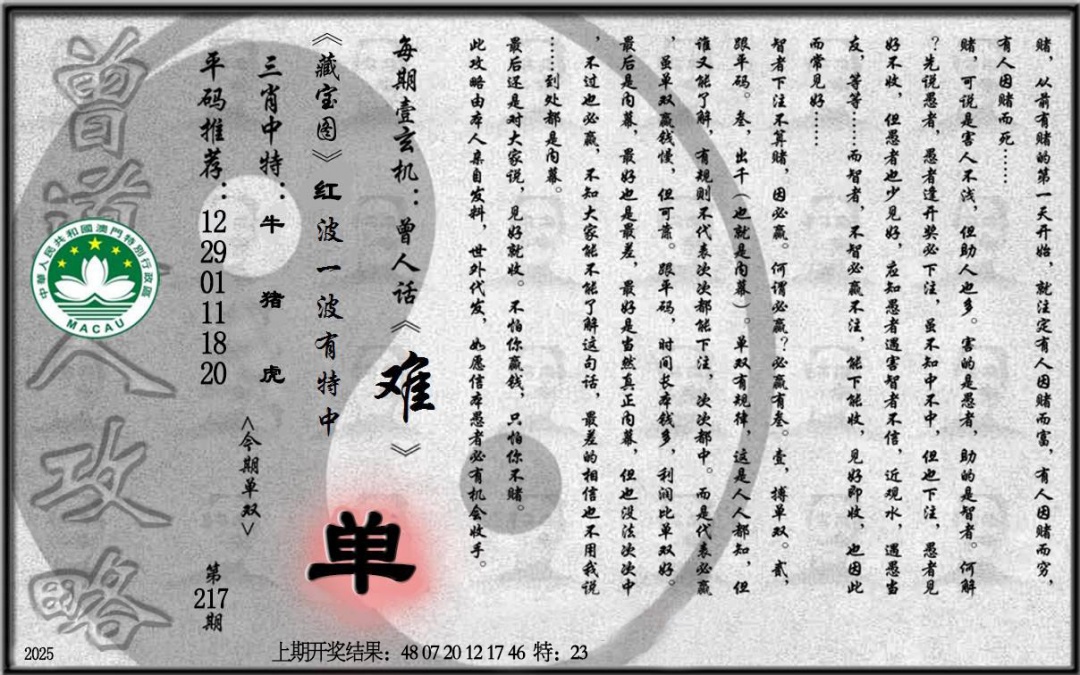 赌，从前有赌的第一天开始，就注定有人因赌而富，有人因赌而穷，
有人因赌而死……
赌，可说是害人不浅，但助人也多。害的是愚者，助的是智者。何解
？先说愚者，愚者逢开奖必下注，虽不知中不中，但也下注，愚者见
好不收，但愚者也少见好，应知愚者遇害智者不信，近观水，遇愚当
友，等等……而智者，不智必赢不注，能下能收，见好即收，也因此
而常见好……
智者下注不算赌，因必赢。何谓必赢？必赢有叁。壹，搏单双。贰，
跟单码。叁，出千（也就是内幕）。单双有规律，这是人人都知，但
谁又能了解，有规则不代表次次都能下注，次次都中。而是代表必赢
，虽单双赢钱慢，但可靠。跟单码，时间长本钱多，利润比单双好。
最后是内幕，最好也是最差，最好是当然真正内幕，但也没法次次中
，不过也必赢，不知大家能不能了解这句话，最差的相信也不用我说
……到处都是内幕。
最后还是对大家说，见好就收。不怕你赢钱，只怕你不赌。
此攻略由本人亲自发料，世外代发，如愿信本愚者必有机会收手。
每期壹玄机：曾人话《难》
《藏宝图》红波一波有特中
单
三肖中特：牛 猪 虎
<今期单双>
平码推荐：12 29 01 11 18 20
第217期
曾道人攻略
中華人民共和國澳門特別行政區
MACAU
2025
上期开奖结果：48 07 20 12 17 46 特：23